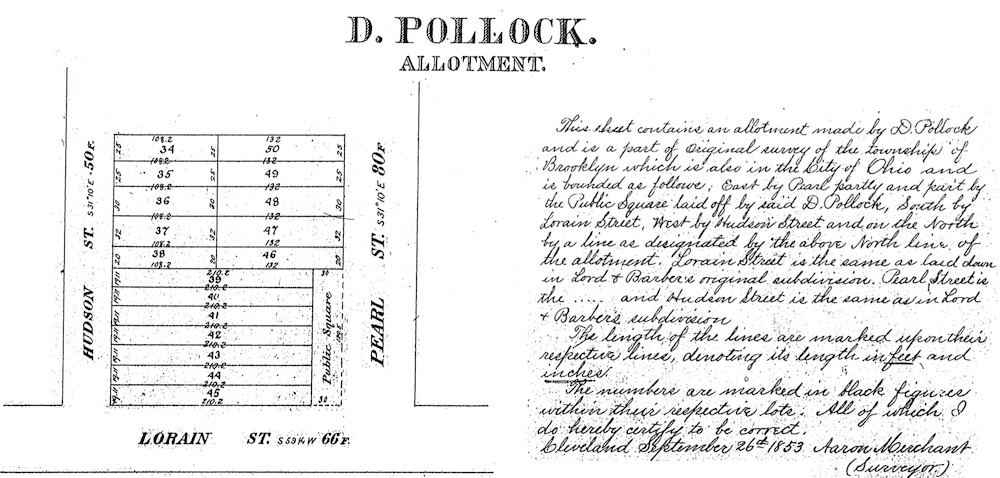 D. POLLOCK.
ALLOTMENT.
HUDSON ST. S 31°10' E 50 F.
108.2 132
25 34 25 50 25
108.2 132
25 35 25 49 25
108.2 132
30 36 30 48 30
108.2 132
32 37 32 47 32
108.2 132
20 38 20 46 20
108.2 132
210.2
19.11 39
210.2
19.11 40
210.2
19.11 41
210.2
19.11 42
210.2
19.11 43
210.2
19.11 44
210.2
19.11 45
210.2
30
Public Square
30
PEARL ST. S 31°10' E 80 F.
LORAIN ST. S 59¼ W 66 F.
This sheet contains an allotment made by D. Pollock
and is a part of original survey of the township of
Brooklyn which is also in the City of Ohio and
is bounded as follows; East by Pearl partly and part by
the Public Square laid off by said D. Pollock, South by
Lorain Street, West by Hudson Street and on the North
by a line as designated by the above North line of
the allotment. Lorain Street is the same as laid down
in Lord & Barber's original subdivision. Pearl Street is
the ..... and Hudson Street is the same as in Lord
& Barber's subdivision
The length of the lines are marked upon their
respective lines, denoting its length in feet and
inches.
The numbers are marked in black figures
within their respective lots. All of which I
do hereby certify to be correct.
Cleveland September 26th 1853 Aaron Merchant
(Surveyor.)